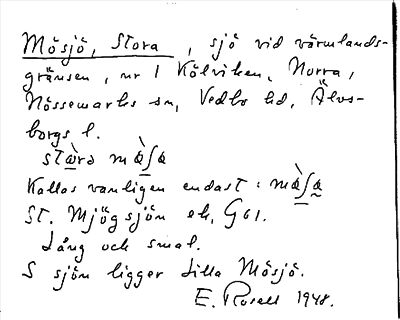 Mösjö, Stora, sjö vid värmlands-
gränsen, nr 1 Kölviken, Norra,
Nössemarks sn, Vedbo hd, Älvs-
borgs l.
Kallas vanligen endast:
St. Mjögsjön ek. G 61.
Lång och smal.
S sjön ligger Lilla Mösjö.
E. Rosell 1948.